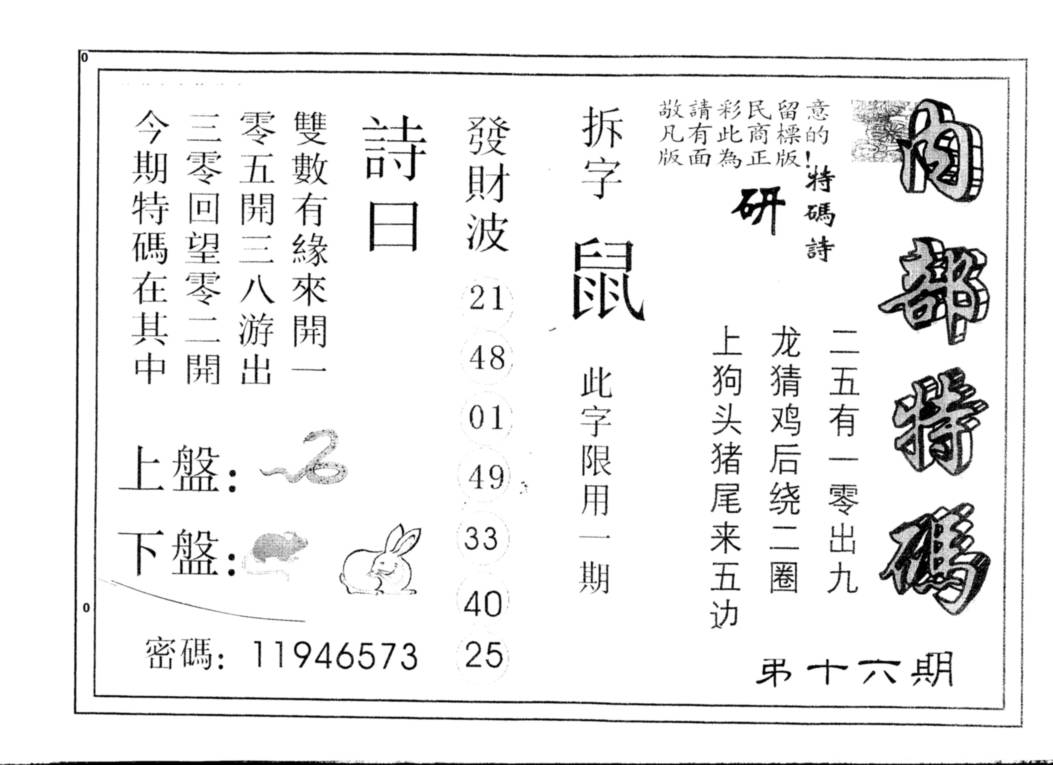 內部特碼
第十六期
敬請彩民留意
凡有此商標的!
版面為正版
特碼詩
研
二五有一零出九
龙猜鸡后绕二圈
上狗头猪尾来五边
拆字
鼠
此字限用一期
發財波
21
48
01
49
33
40
25
詩曰
雙數有緣來開一
零五開三八游出
三零回望零二開
今期特碼在其中
上盤:
下盤:
密碼: 11946573
0
0